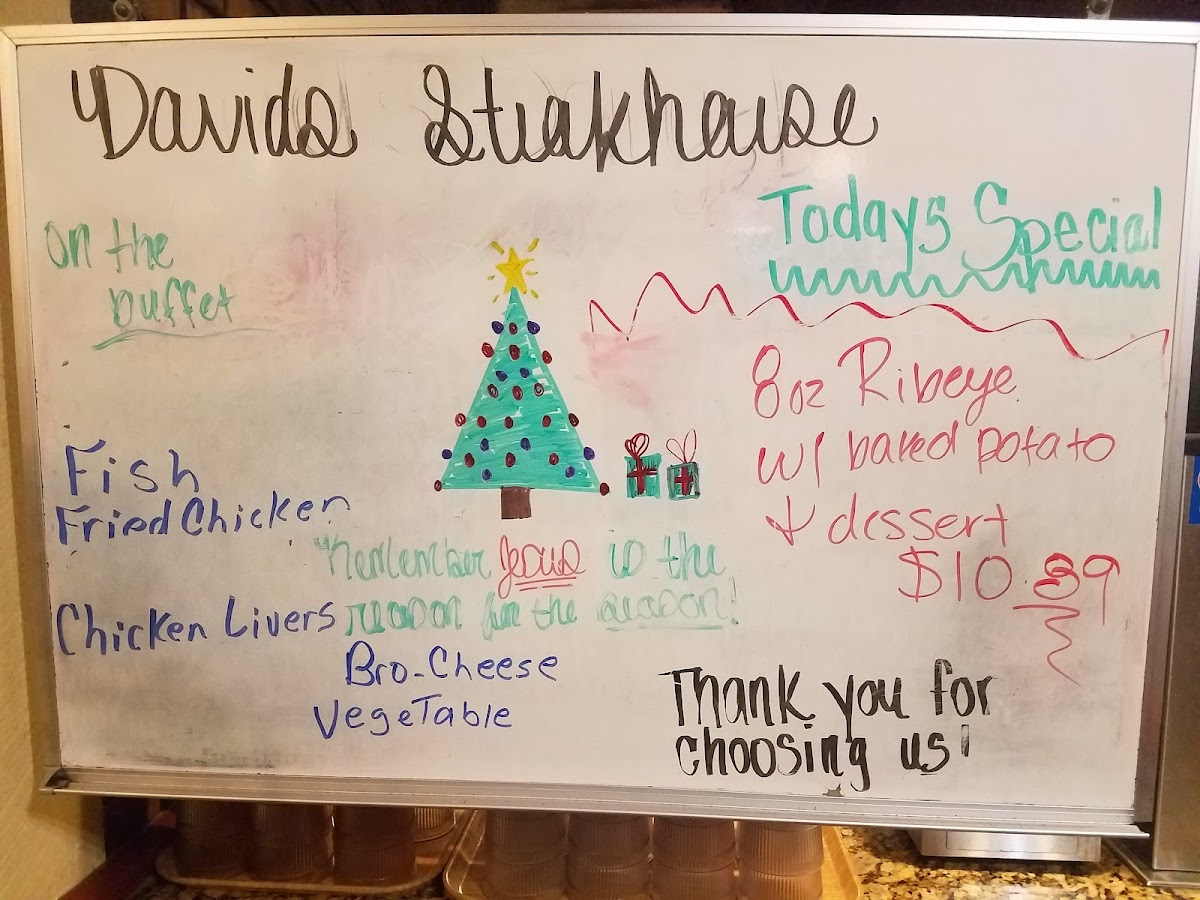 Davids Steakhouse
on the
buffet
Fish
Fried Chicken
Chicken Livers
Remember Jesus is the
reason for the season!
Bro-Cheese
VegeTable
Todays Special
8oz Ribeye
w/ baked potato
+ dessert
$10.89
Thank you for
choosing us!